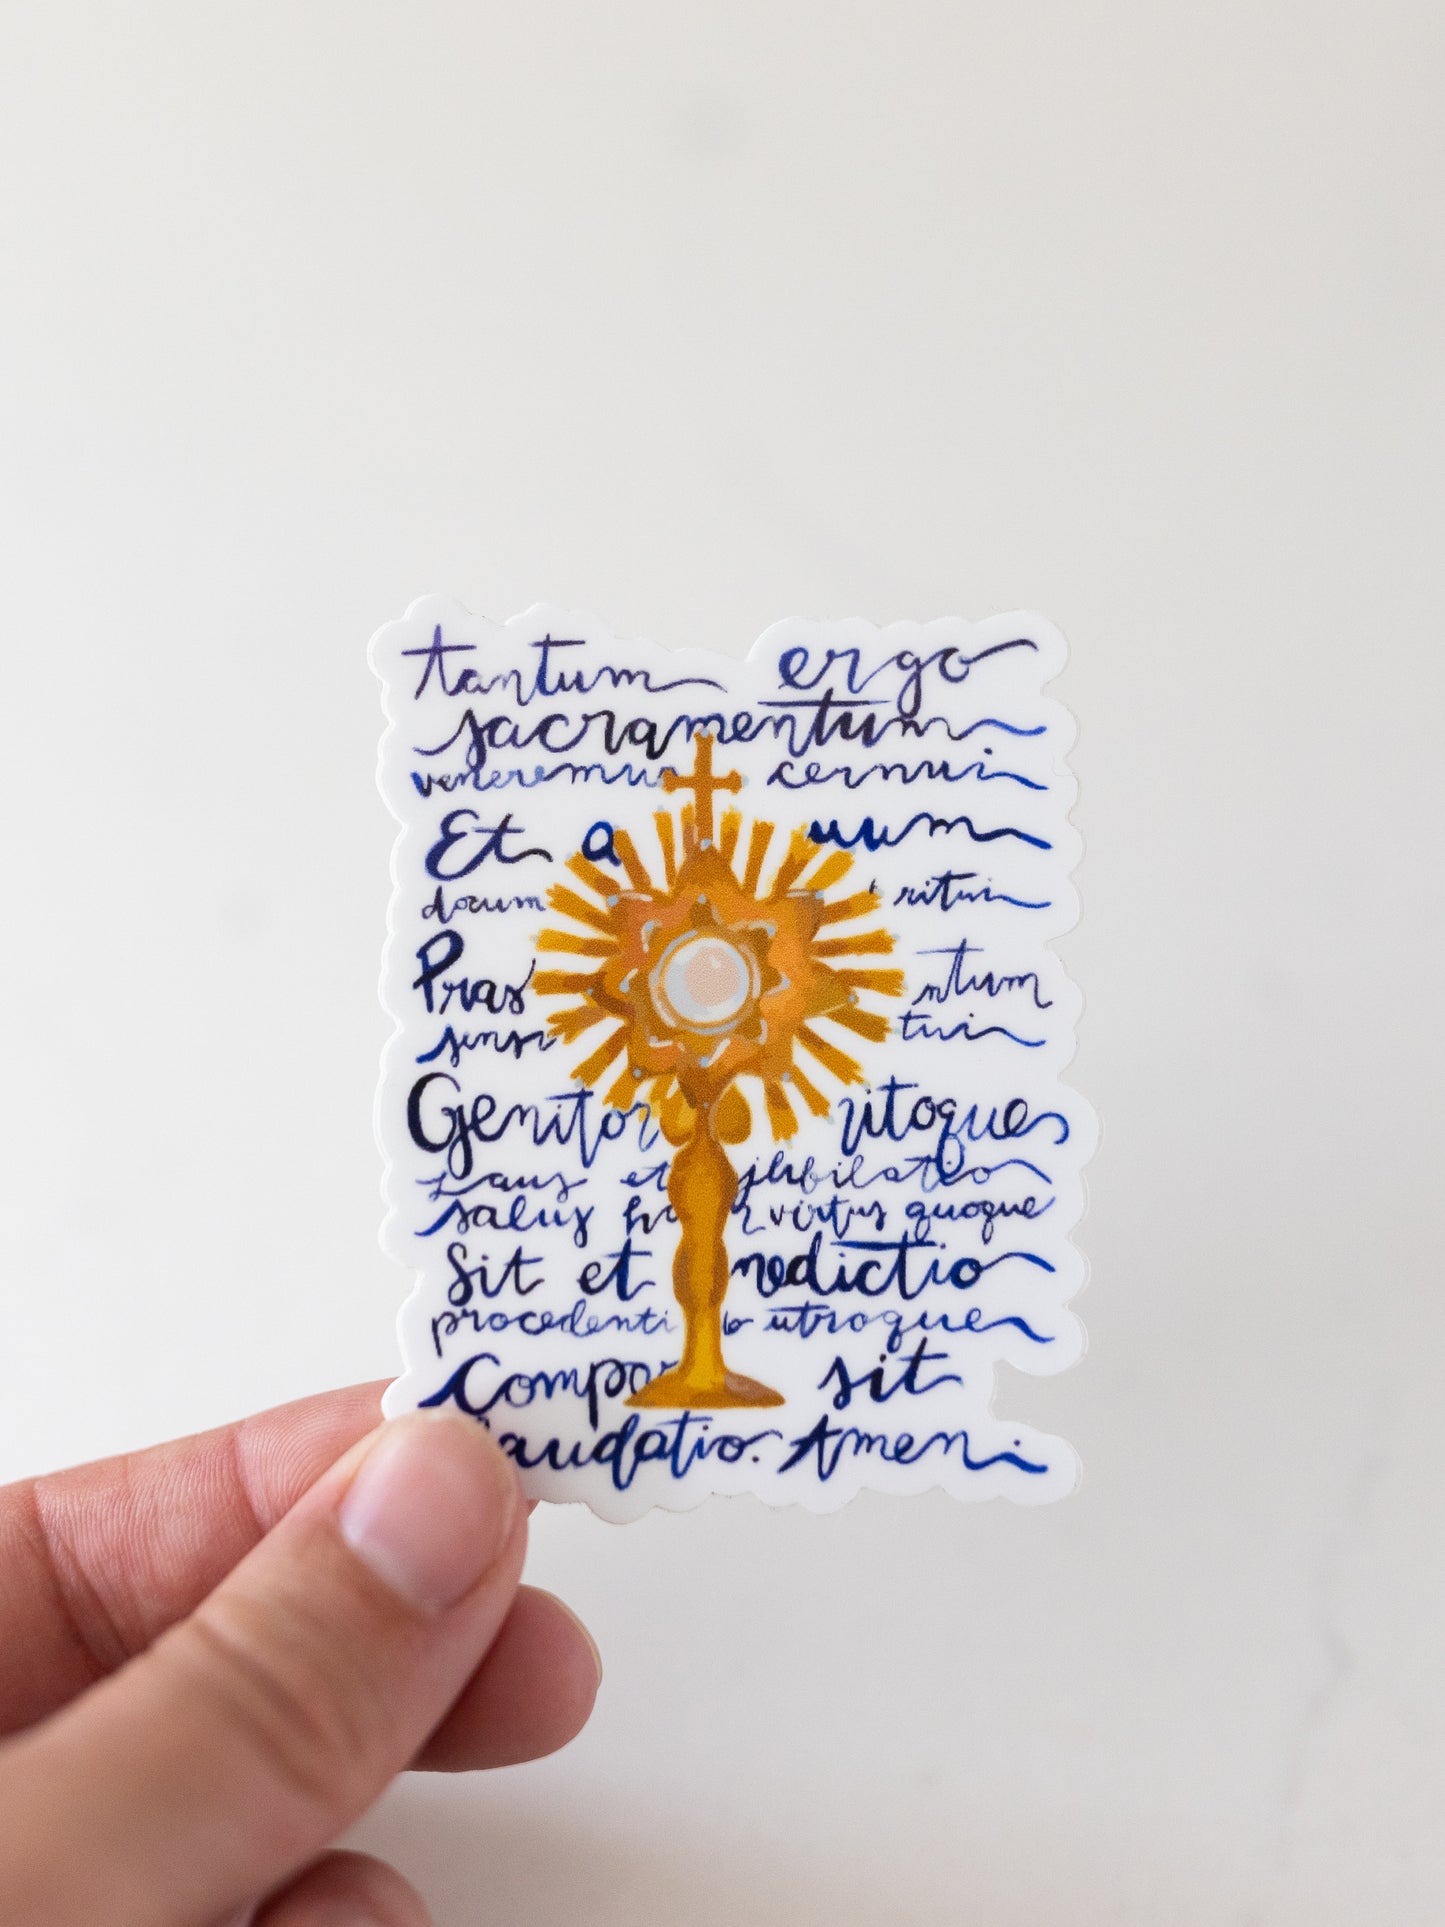 tantum ergo
sacramentum
veneremur cernui
Et a uum
docum ritui
Pras ntum
sensu tui
Genitor ritoque
Laus et jubilatio
salus h virtus quoque
Sit et nedictio
procedenti b utroque
Compar sit
laudatio. Amen.